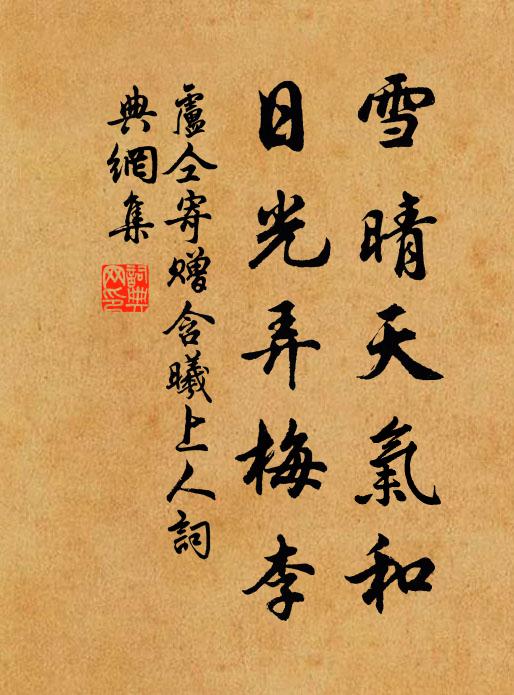 雪晴天氣和
日光弄梅李
盧仝寄贈含曦上人詞
典網集
詞典網印